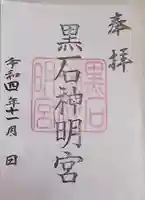 奉拝
黒石神明宮
黒石
神明宮
令和四年十一月 日